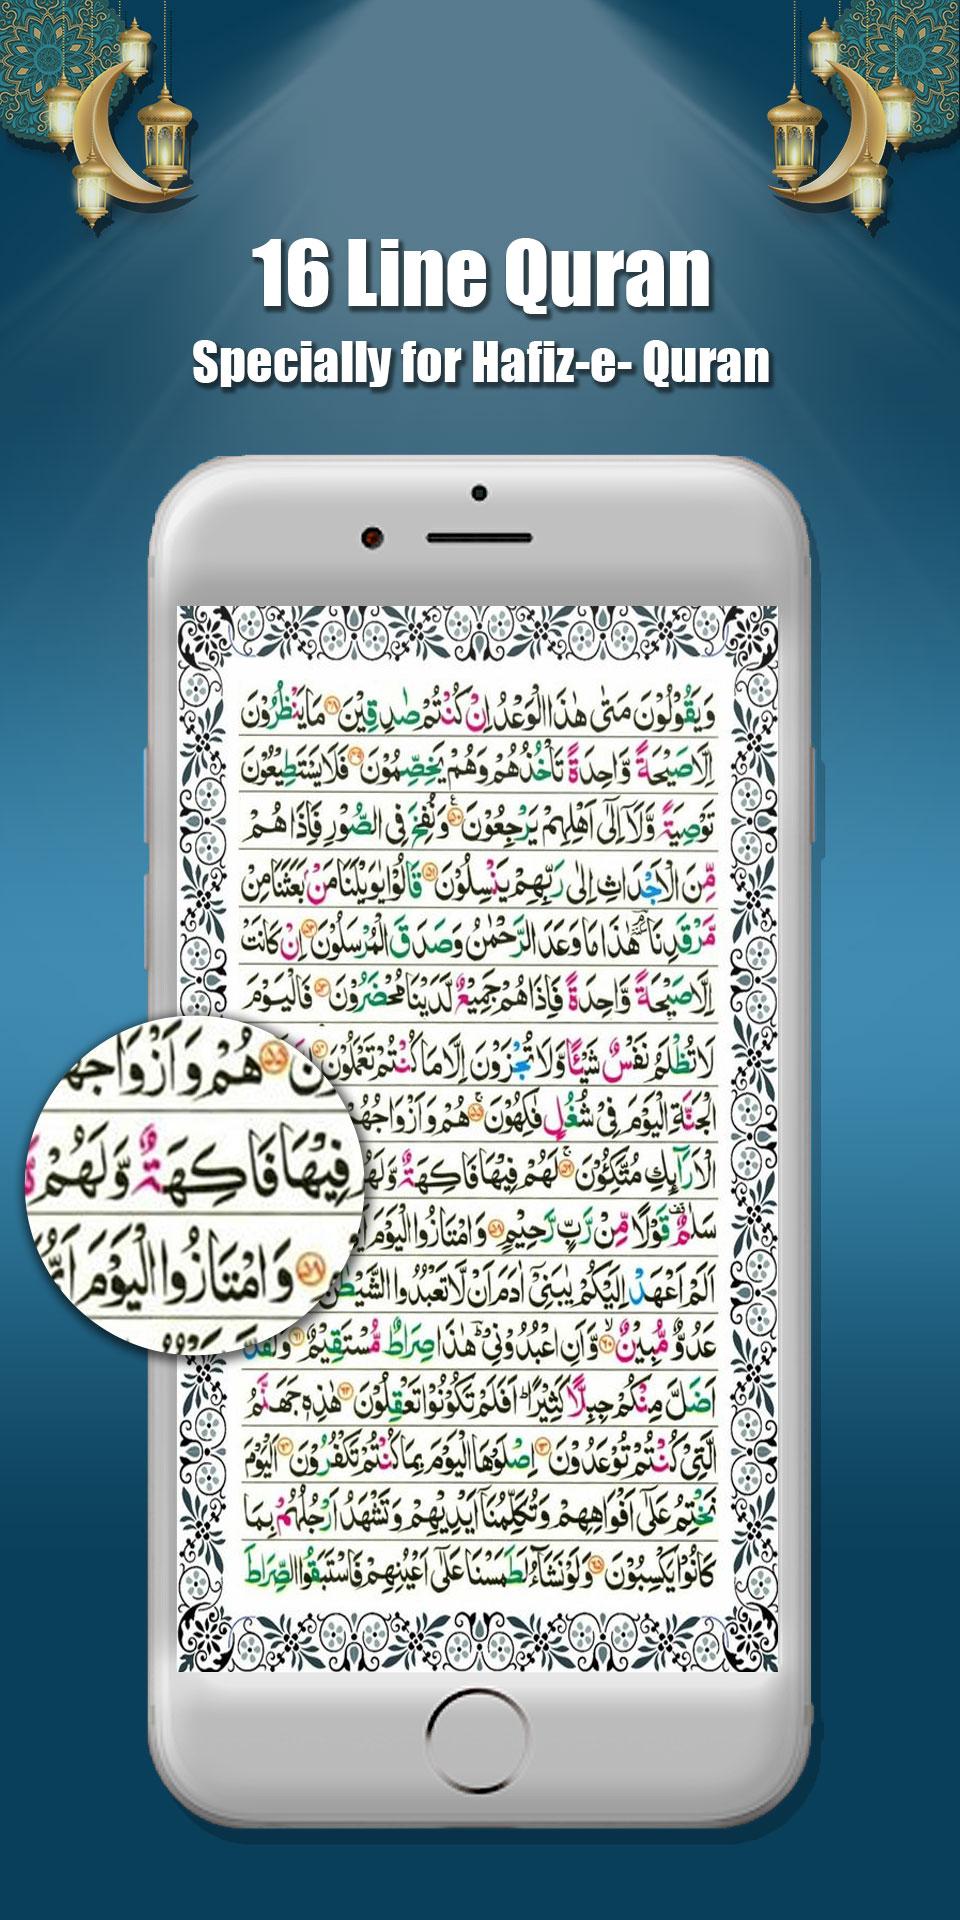 16 Line Quran
Specially for Hafiz-e- Quran
وَيَقُوْلُوْنَ مَتٰى هٰذَا الْوَعْدُ اِنْ كُنْتُمْ صٰدِقِيْنَ ۴۸ مَا يَنْظُرُوْنَ
اِلَّا صَيْحَةً وَّاحِدَةً تَاْخُذُهُمْ وَهُمْ يَخِصِّمُوْنَ ۴۹ فَلَا يَسْتَطِيْعُوْنَ
تَوْصِيَةً وَّلَآ اِلٰٓى اَهْلِهِمْ يَرْجِعُوْنَ ۵۰ وَنُفِخَ فِى الصُّوْرِ فَاِذَا هُمْ
مِّنَ الْاَجْدَاثِ اِلٰى رَبِّهِمْ يَنْسِلُوْنَ ۵۱ قَالُوْا يٰوَيْلَنَا مَنْۢ بَعَثَنَا مِنْ
مَّرْقَدِنَا هٰذَا مَا وَعَدَ الرَّحْمٰنُ وَصَدَقَ الْمُرْسَلُوْنَ ۵۲ اِنْ كَانَتْ
اِلَّا صَيْحَةً وَّاحِدَةً فَاِذَا هُمْ جَمِيْعٌ لَّدَيْنَا مُحْضَرُوْنَ ۵۳ فَالْيَوْمَ
لَا تُظْلَمُ نَفْسٌ شَيْئًا وَّلَا تُجْزَوْنَ اِلَّا مَا كُنْتُمْ تَعْمَلُوْنَ
الْجَنَّةِ الْيَوْمَ فِيْ شُغُلٍ فٰكِهُوْنَ ۵۵ هُمْ وَاَزْوَاجُهُمْ
الْاَرَآئِكِ مُتَّكِـُٔوْنَ ۵۶ لَهُمْ فِيْهَا فَاكِهَةٌ وَّلَهُمْ
سَلٰمٌ قَوْلًا مِّنْ رَّبٍّ رَّحِيْمٍ ۵۸ وَامْتَازُوا الْيَوْمَ
اَلَمْ اَعْهَدْ اِلَيْكُمْ يٰبَنِيْٓ اٰدَمَ اَنْ لَّا تَعْبُدُوا الشَّيْطٰنَ
عَدُوٌّ مُّبِيْنٌ ۶۰ وَّاَنِ اعْبُدُوْنِيْ هٰذَا صِرَاطٌ مُّسْتَقِيْمٌ ۶۱ وَلَقَدْ
اَضَلَّ مِنْكُمْ جِبِلًّا كَثِيْرًا اَفَلَمْ تَكُوْنُوْا تَعْقِلُوْنَ ۶۲ هٰذِهٖ جَهَنَّمُ
الَّتِيْ كُنْتُمْ تُوْعَدُوْنَ ۶۳ اِصْلَوْهَا الْيَوْمَ بِمَا كُنْتُمْ تَكْفُرُوْنَ ۶۴ اَلْيَوْمَ
نَخْتِمُ عَلٰٓى اَفْوَاهِهِمْ وَتُكَلِّمُنَآ اَيْدِيْهِمْ وَتَشْهَدُ اَرْجُلُهُمْ بِمَا
كَانُوْا يَكْسِبُوْنَ ۶۵ وَلَوْ نَشَآءُ لَطَمَسْنَا عَلٰٓى اَعْيُنِهِمْ فَاسْتَبَقُوا الصِّرَاطَ
هُمْ وَاَزْوَاجُهُمْ
فِيْهَا فَاكِهَةٌ وَّلَهُمْ
وَامْتَازُوا الْيَوْمَ